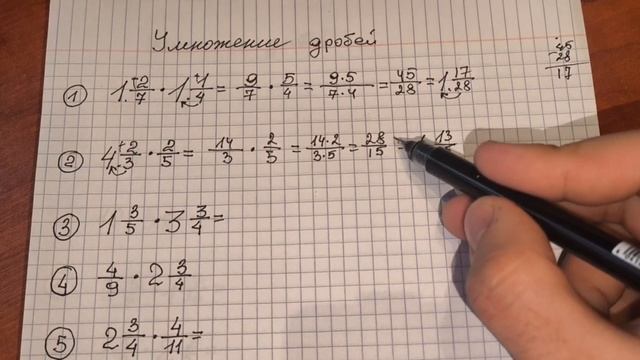 Умножение дробей
① 1 2/7 · 1 1/4 = 9/7 · 5/4 = 9·5/7·4 = 45/28 = 1 17/28
45
- 28
17
② 4 2/3 · 2/5 = 14/3 · 2/5 = 14·2/3·5 = 28/15 = 13
③ 1 3/5 · 3 3/4 =
④ 4/9 · 2 3/4
⑤ 2 3/4 · 4/11 =